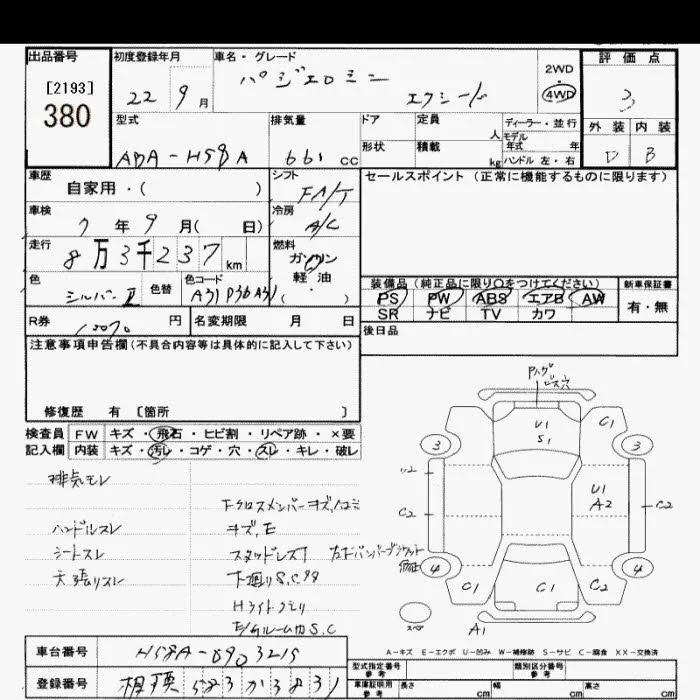 出品番号 初度登録年月 車名・グレード 評価点
[2193]
380
22 9月 パジェロミニ エクシード 2WD 4WD 3
型式 排気量 ドア 定員 人 ディーラー・並行 外装 内装
形状 積載 kg モデル年式 年 ハンドル 左・右
ABA-H58A 661 cc D B
車歴 自家用・( ) シフト FA/T セールスポイント(正常に機能するものに限ります)
車検 7年9月( 日) 冷房 A/C
走行 8万3千237km 燃料 ガソリン 軽油 ( )
色 シルバーII 色替 色コード A31 P36 A31
装備品(純正品に限り○をつけてください) 新車保証書
PS PW ABS エアB AW 有・無
SR ナビ TV カワ
R券 円 名変期限 月 日 後日品
注意事項申告欄(不具合内容等は具体的に記入して下さい)
修復歴 有 [箇所 ]
検査員 FW キズ・飛石・ヒビ割・リペア跡・×要
記入欄 内装 キズ・汚レ・コゲ・穴・スレ・キレ・破レ
排気モレ
Fクロスメンバーキズ,凹ミ
ハンドルスレ キズ,E
シートスレ スタッドレスT
天張りスレ 下廻りS.C
Hライトクモリ
S.C
Pハゲ
ビス穴
U1 C1
S1
3 3
U1
A2
C2 C2
4 4
C1 C1 C2
スペア A1
A-キズ E-エクボ U-凹み W-補修跡 S-サビ C-腐食 XX-交換済
車台番号 H58A-0903215
登録番号 相模 583 か 3831
型式指定番号 参考 類別区分番号 参考
車庫証明用 参考 長さ cm 幅 cm 高さ cm